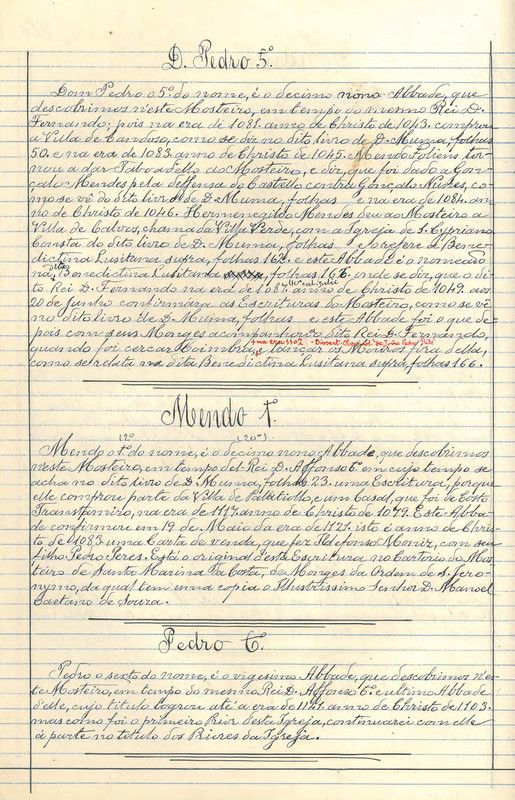 D. Pedro 5º.
Dom Pedro o 5º. do nome, é o decimo nono Abbade, que
descobrimos n'este Mosteiro, em tempo do mesmo Rei D.
Fernando; pois na era de 1081. anno de Christo de 1043. comprou
a Villa de Candoso, como se diz no dito livro de D. Muma, folhas
50. e na era de 1083. anno de Christo de 1045. Mendo Foliens, tor-
nou a dar Taboadello ao Mosteiro, e diz, que foi dado a Gon-
çalo Mendes pela deffensa do Castello contra Gonçalo Nunes, co-
mo se vê do dito livro de D. Muma, folhas e na era de 1084. an-
no de Christo de 1046. Hermenegildo Mendes deu ao Mosteiro a
Villa de Calves, chamada Villa Verde, com a Igreja de S. Cypriano.
Consta do dito livro de D. Muma, folhas e o refere a Bene-
dictina Lusitana supra, folhas 162. e este Abbade é o nomeado
na dita Benedictina Lusitana, folhas 166. onde se diz, que o di-
to Rei D. Fernando na era de 1087. anno de Christo de 1049. aos
20 de Junho confirmára as Escrituras do Mosteiro, como se vê
no dito livro de D. Muma, folhas e este Abbade foi o que de-
pois com seus Monges acompanhou o dito Rei D. Fernando,
+ na era 1102 - Dissert. Chronol. de João Pedro Ribº.
quando foi cercar Coimbra, e lançar os Mouros fóra della,
como se relata na dita Benedictina Lusitana supra, folhas 166.
Mendo 1º.
(2º) (20º)
Mendo o 1º. do nome, é o decimo nono Abbade, que descobrimos
neste Mosteiro, em tempo del-Rei D. Affonso 6º. em cujo tempo se
acha no dito livro de D. Muma, folhas 23. uma Escritura, porque
elle comprou parte da Villa de Palatiollo, e um Casal, que foi de Gosto
Transtamiro, na era de 1117. anno de Christo de 1079. Este Abba-
de confirmou em 19 de Maio da era de 1121. isto é anno de Chris-
to de 1083. uma Carta de venda, que fez Ildefonso Moniz, com seu
filho Pedro Peres. Está o original desta Escritura no Cartorio do Mos-
teiro de Santa Marina da Costa, de Monges da Ordem de S. Jero-
nymo, da qual tem uma copia o Illustrissimo Senhor D. Manoel
Caetano de Souza.
Pedro 6.
Pedro o sexto do nome, é o vigesimo Abbade, que descobrimos n'es-
te Mosteiro, em tempo do mesmo Rei D. Affonso 6º. e ultimo Abbade
d'elle, cujo titulo logrou até a era de 1141. anno de Christo de 1103.
mas como foi o primeiro Prior desta Igreja, continuarei com elle
á parte no titulo dos Priores da Igreja.